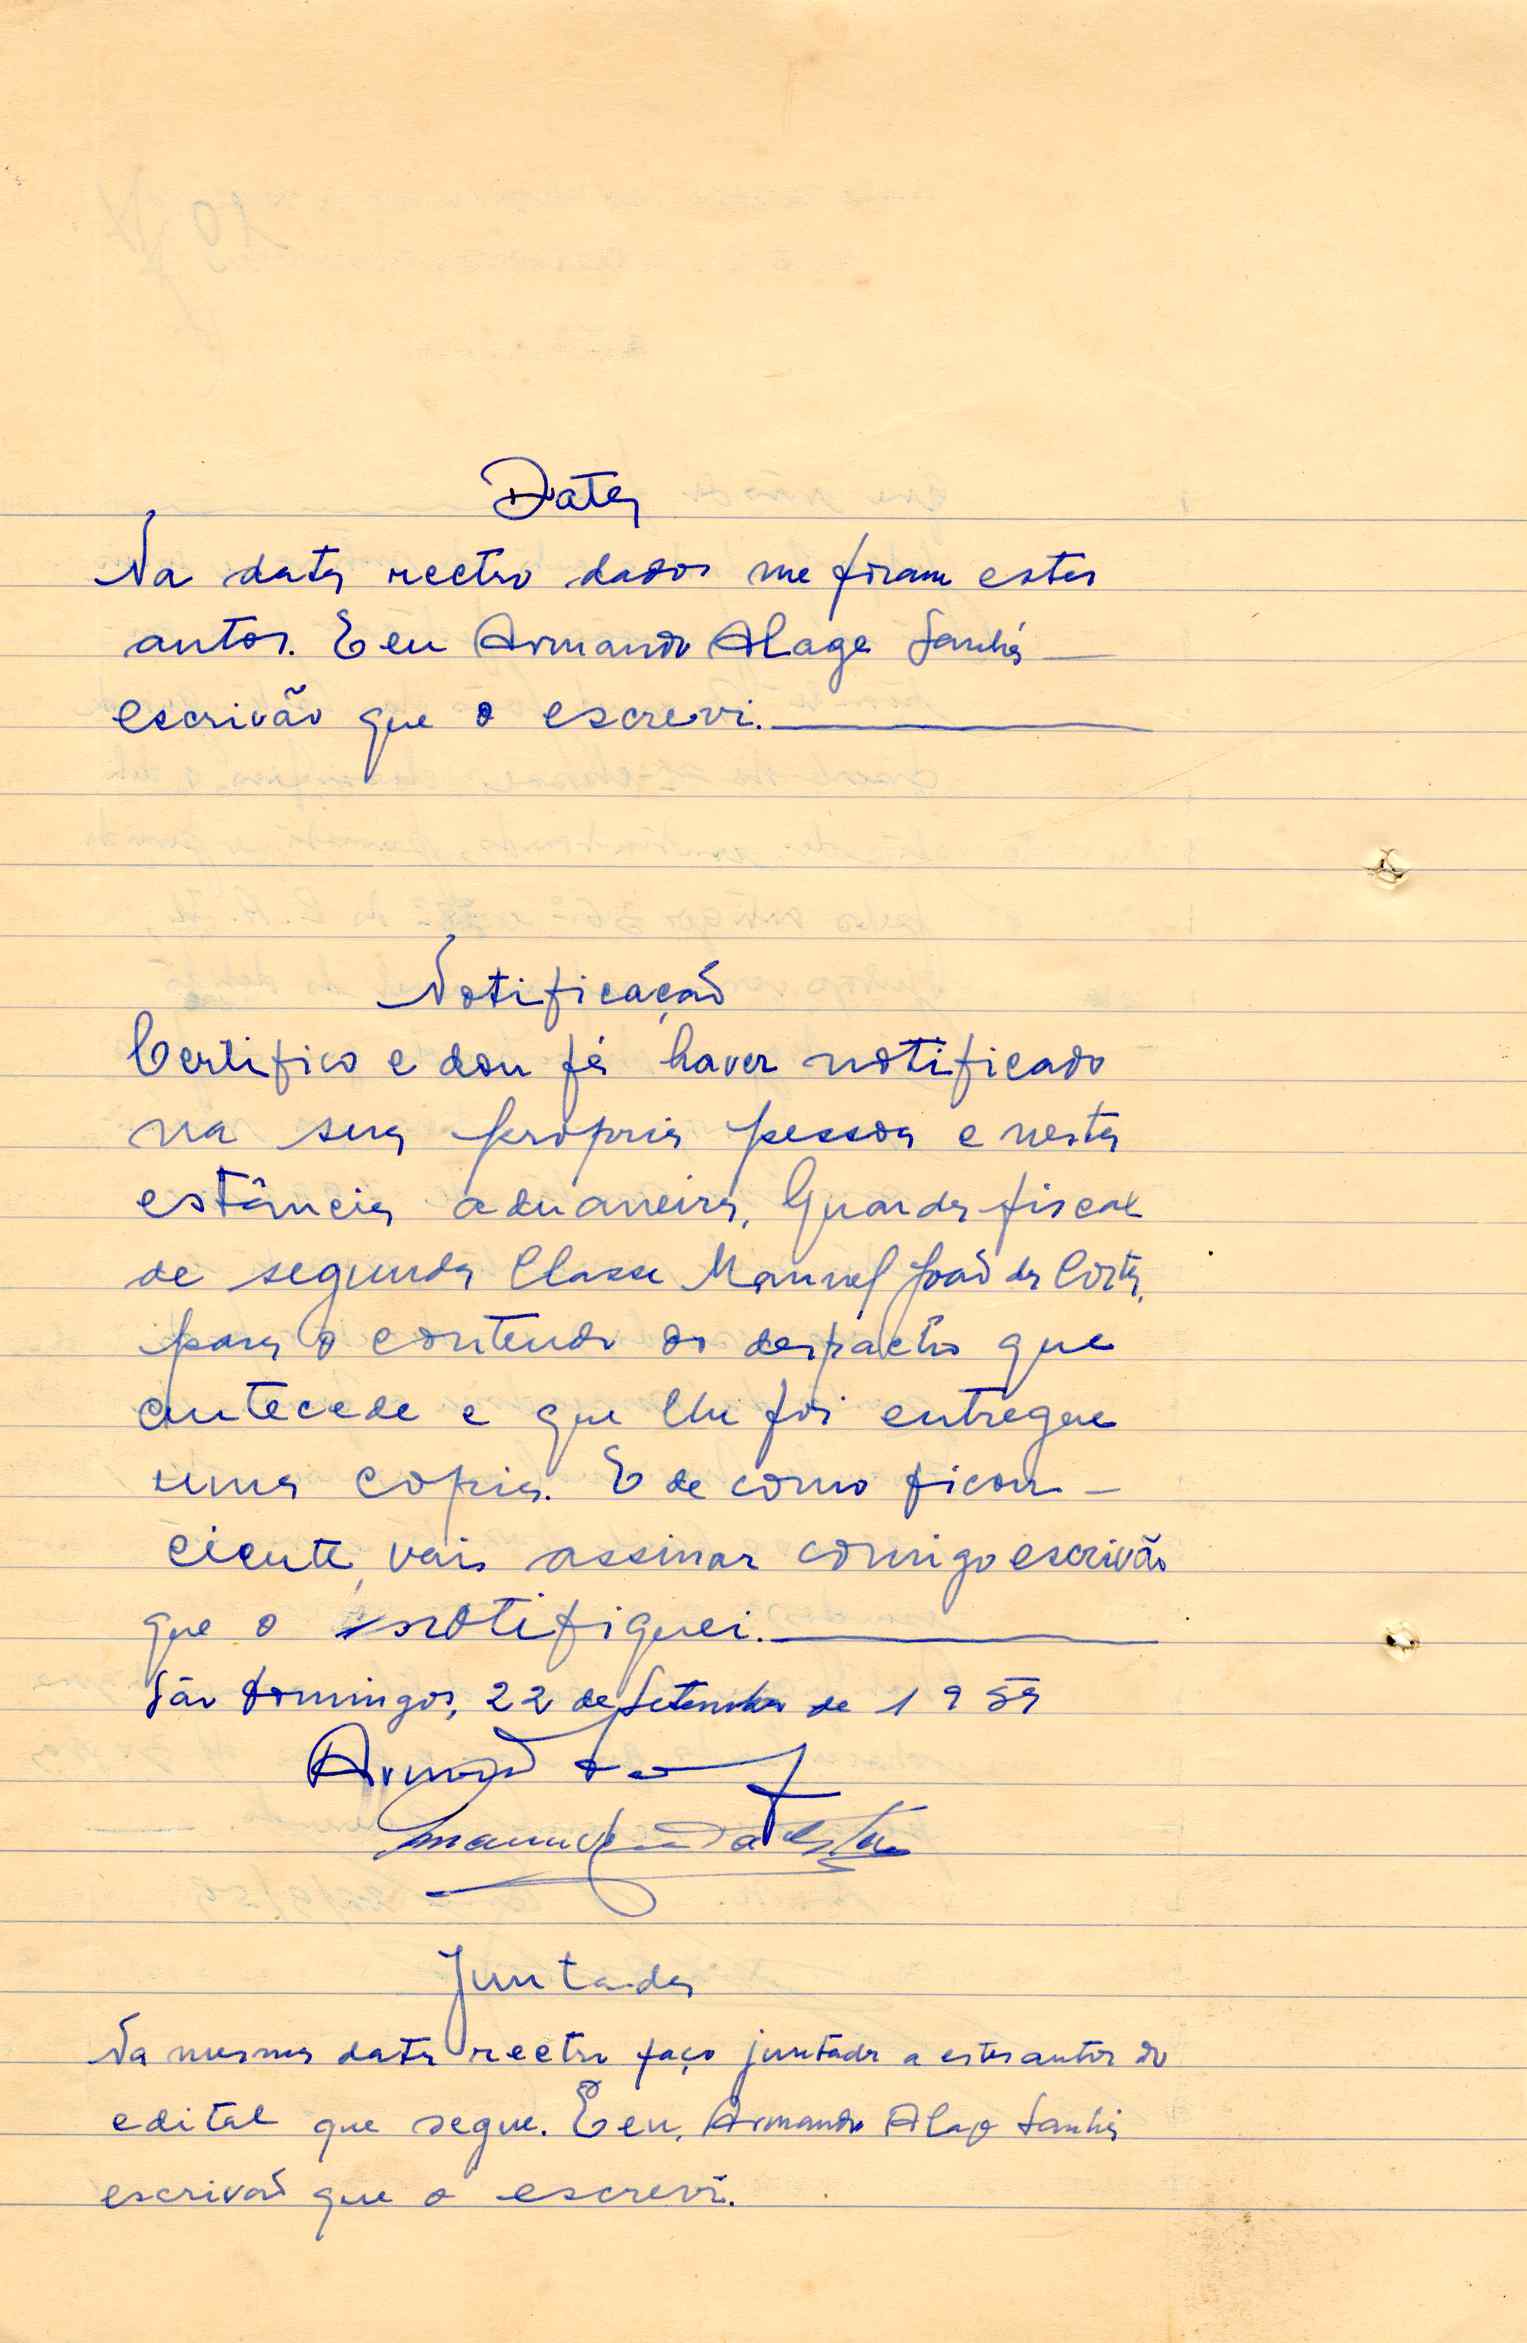 Data
Na data rectro dados me foram estes
autos. E eu Armando Alage Sanhá
escrivão que o escrevi.
Notificação
Certifico e dou fé haver notificado
na sua propria pessoa e nesta
estância aduaneira, Guarda fiscal
de segunda Classe Manuel João da Costa,
para o conteudo do despacho que
antecede e que lhe foi entregue
uma copia. E de como ficou
ciente, vais assinar comigo escrivão
que o notifiquei.
São Domingos, 22 de Setembro de 1959
Juntada
Na mesma data rectro faço juntada a estes autos do
edital que segue. E eu, Armando Alage Sanhá
escrivão que o escrevi.